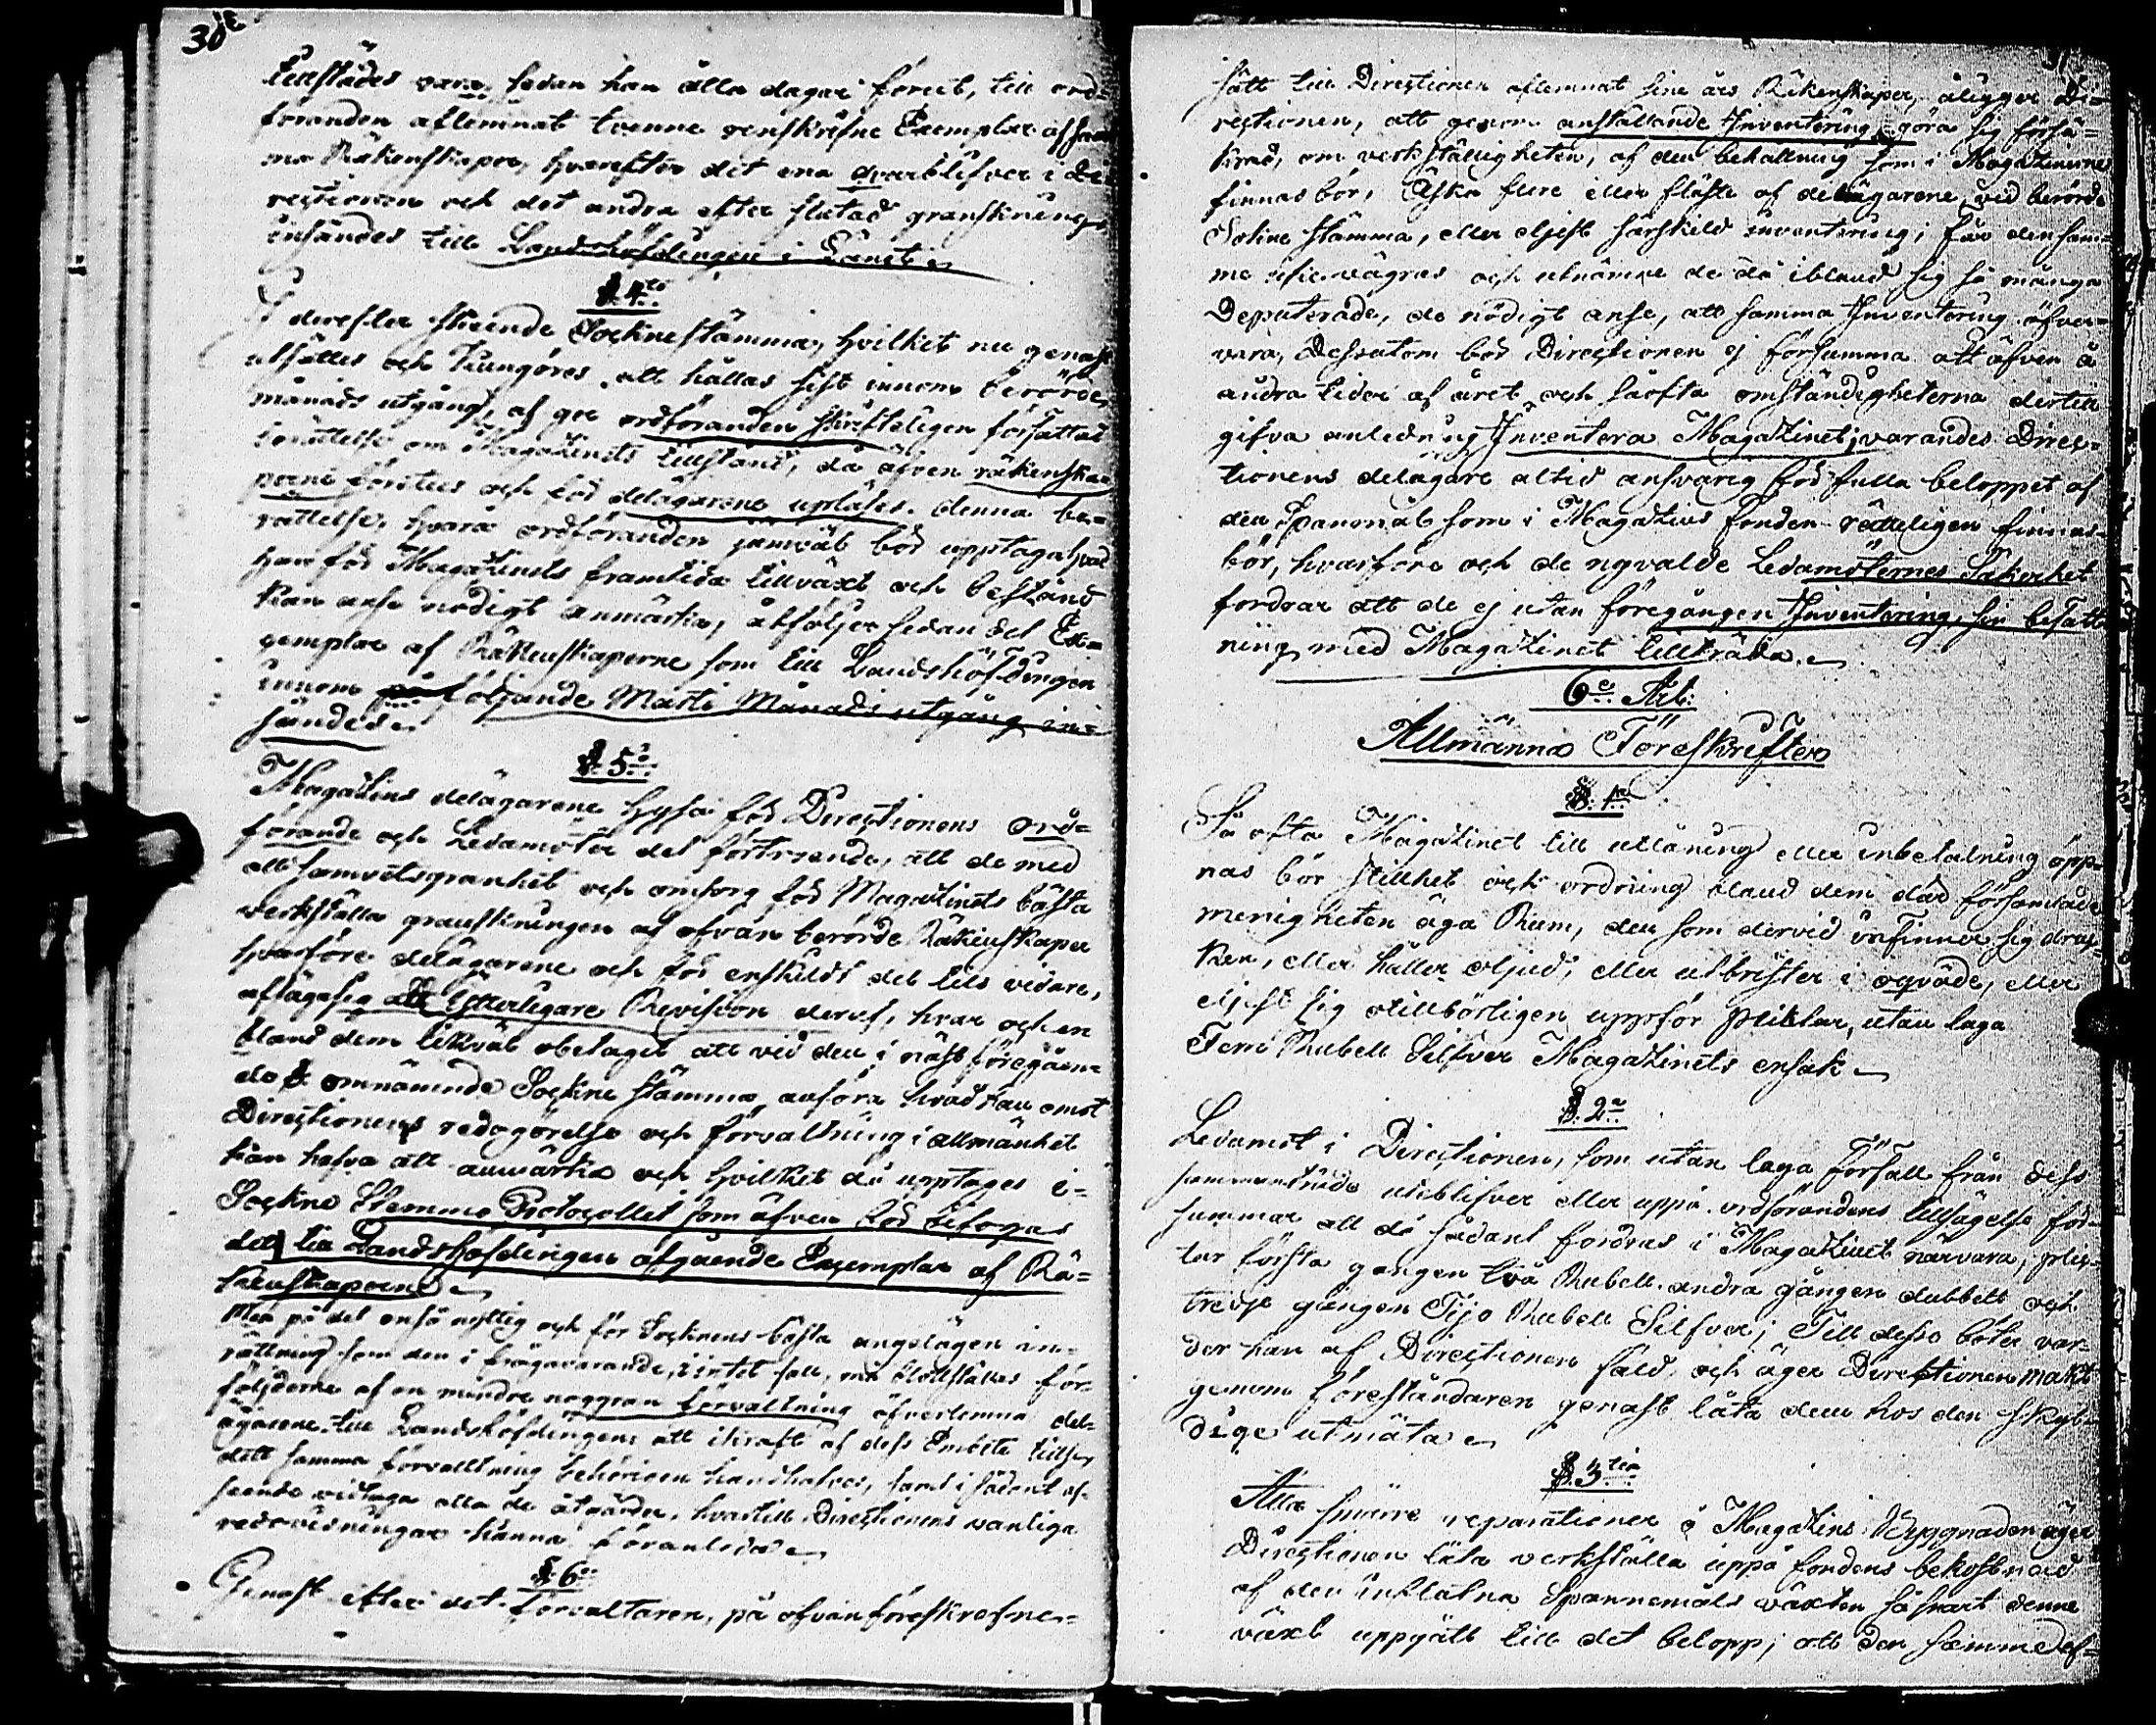 30de
tillstädes vara, sedan han älla dagar förut, till ord=
föranden aflemnat tvenne renskrifne Exemplar af sam
ma Räkenskaper, hvarefter det ena qvarblifver i Di=
rectionen och det andra efter slutad granskning
insändes till Landshöfdingen i Länet.
§ 4to
derefter skeende Sockne stämma, hvilket nu genast
utsättes och kungöres, att hållas sist innom berörde
månads utgång, af ger ordföranden skrifteligen författad
berättelse om Magazinets tillstånd, då äfven räkenska=
perne företees och för delägarene uplåses. denna be=
rättelse, hvara ordföranden jemväl bör upptaga hvad
han för Magazinets framtida tillväxt och bestånd
kan anse nödigt anmärka, åtföljer sedan det Ex=
gemplar af Räkenskaperne som till Landshöfdingen
innom på följande Marti Månads utgång in=
sändes.
§ 5.
Magazins delägarene hysa för Directionens ord=
förande och Ledamöter det förtroende, att de med
all samvetsgranhet och omsorg för Magazinets bästa
verkställa granskningen af ofvan berörde Räkenskaper
hvarföre delägarene och för enskildt del tils vidare,
afsägasig all ytterligare Revision deraf, hvar och en
bland dem likväl obetaget att vid den i näst föregåen=
de § omnämnde Sockne stämma, anföra hvad han emot
Directionens redogörelse och förvaltning i allmänhet
kan hafva att anmärka och hvilket då upptages i=
Sockne Stemmo Protocollet som äfven bör bifogas
det till Landshöfdingen afgående Exemplar af Rä=
kenskaperne
Men på det en så nyttig och för Socknens bästa angelägen in=
rättning som den i frågavarande, i intet fall, må blottställas för
följderne af en mindre noggran förvaltning öfverlemna del=
ägarene till Landshöfdingens att i kraft af dess Embete tillse,
dett samma förvalltning behörigen handhafves, samt i sådant af=
seende vidtaga alla de åtgärder, hvartill Directionens vanliga
redovisningar kunna föranleda.
§ 6.
Genast efter det Förvaltaren, på ofvan föreskrefne=
sätt till Directionen aflemnat sine års Räkenskaper, åligger Di=
rectionen, att genom anställande Inventering göra sig försä=
krad, om verkställigheten, af den behållning som i Magazinerne
finnas bör, Äska flere eller fläste af delägarene vid berörde
Sokne stämma, eller eljest särskild inventering; får densam=
ma icke vägras och utnämne de då ibland sig så många
Deputerade, de nödigt anse, att samma Inventering öfver=
vara, Dessutom bör Directionen ej försumma att äfven å
andra tider af året och så ofta omständigheterna dertill
gifva anledning Inventera Magazinet; varandes Direc=
tionens delägare altid ansvarig för fulla beloppet af
den Spanmål som i Magazins fonden rätteligen finnas
bör, hvarföre och de nyvalde Ledamöternes Säkerhet
fordrar att de ej utan föregången Inventering sin befatt
ning med Magazinet tillträda.
6e Art:
Allmänna Föreskrifter
§. 1a
Så ofta Magazinet till utlåning eller inbetalning öpp=
nas bör stillhet och ordning bland dem där församlade
menigheten äga Rum, den som dervid infinner sig druc=
ken, eller håller oljud, eller utbrister i oqväde, eller
eljest sig otillbörligen uppför pliktar, utan laga
Fem Rubell Silfver Magazinets ensak
§. 2a
Ledamot i Directionen, som utan laga förfall från dess
sammanträde uteblifver eller uppå ordförandens tillsägelse för=
summar att då sådant fordras i Magazinet närvara, plic=
tar första gången två Rubell. andra gången dubbelt och
tredje gången Tijo Rubell Silfver; Till desse böter var=
der han af Directionen fäld, och äger Direktionen makt
genom föreståndaren genast låta dem hos den skyl=
dige utmäta
§. 3tia
Alla smärre reparationer å Magazins Byggnaden äger
Directionen låta verkställa uppå fondens bekostnad
af den influtna Spannemåls växten så snart denne
växt uppgått till det belopp; att den samme af=